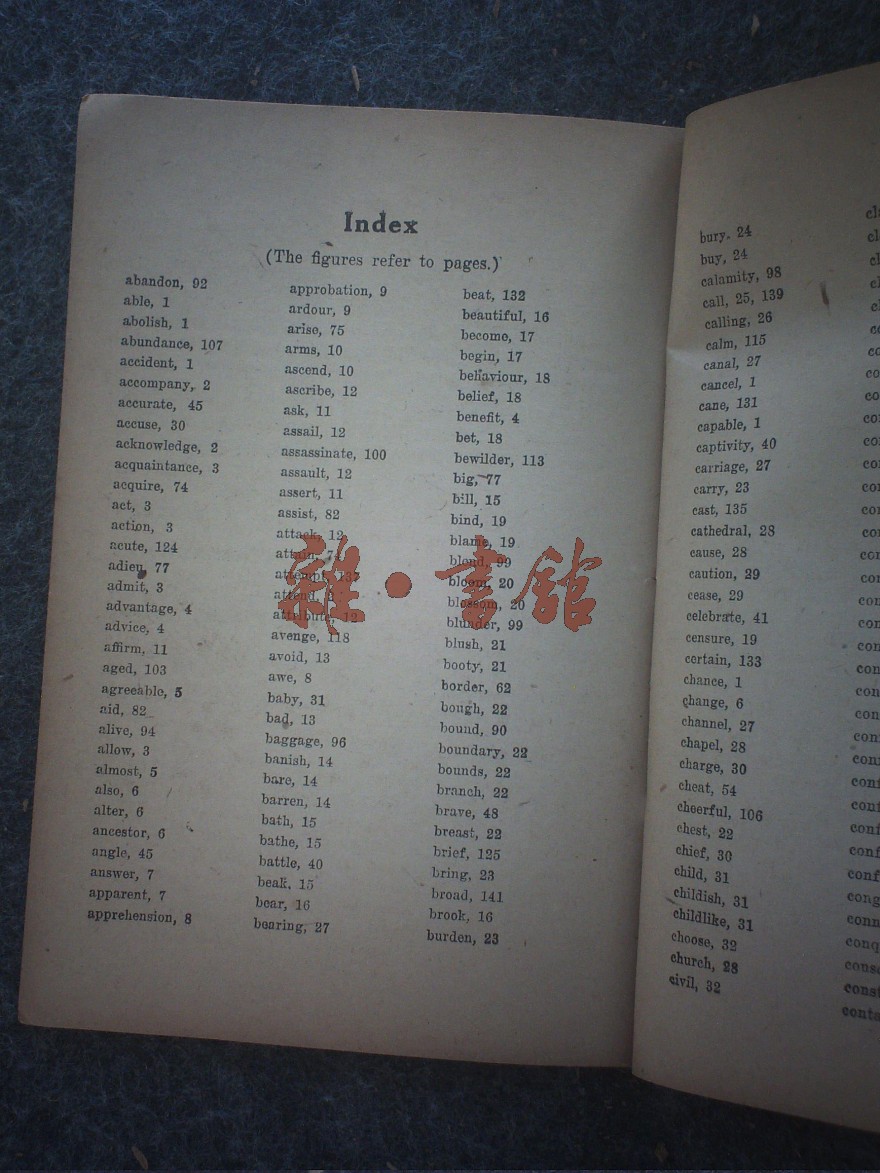 Index
(The figures refer to pages.)
abandon, 92
able, 1
abolish, 1
abundance, 107
accident, 1
accompany, 2
accurate, 45
accuse, 30
acknowledge, 2
acquaintance, 3
acquire, 74
act, 3
action, 3
acute, 124
adieu, 77
admit, 3
advantage, 4
advice, 4
affirm, 11
aged, 103
agreeable, 5
aid, 82
alive, 94
allow, 3
almost, 5
also, 6
alter, 6
ancestor, 6
angle, 45
answer, 7
apparent, 7
apprehension, 8
approbation, 9
ardour, 9
arise, 75
arms, 10
ascend, 10
ascribe, 12
ask, 11
assail, 12
assassinate, 100
assault, 12
assert, 11
assist, 82
attack, 12
attain,
attempt, 137
attend,
attribute, 12
avenge, 118
avoid, 13
awe, 8
baby, 31
bad, 13
baggage, 96
banish, 14
bare, 14
barren, 14
bath, 15
bathe, 15
battle, 40
beak, 15
bear, 16
bearing, 27
beat, 132
beautiful, 16
become, 17
begin, 17
behaviour, 18
belief, 18
benefit, 4
bet, 18
bewilder, 113
big, 77
bill, 15
bind, 19
blame, 19
blend, 99
bloom, 20
blossom, 20
blunder, 99
blush, 21
booty, 21
border, 62
bough, 22
bound, 90
boundary, 22
bounds, 22
branch, 22
brave, 48
breast, 22
brief, 125
bring, 23
broad, 141
brook, 16
burden, 23
雜·書館
bury, 24
buy, 24
calamity, 98
call, 25, 139
calling, 26
calm, 115
canal, 27
cancel, 1
cane, 131
capable, 1
captivity, 40
carriage, 27
carry, 23
cast, 135
cathedral, 28
cause, 28
caution, 29
cease, 29
celebrate, 41
censure, 19
certain, 133
chance, 1
change, 6
channel, 27
chapel, 28
charge, 30
cheat, 54
cheerful, 106
chest, 22
chief, 30
child, 31
childish, 31
childlike, 31
choose, 32
church, 28
civil, 32